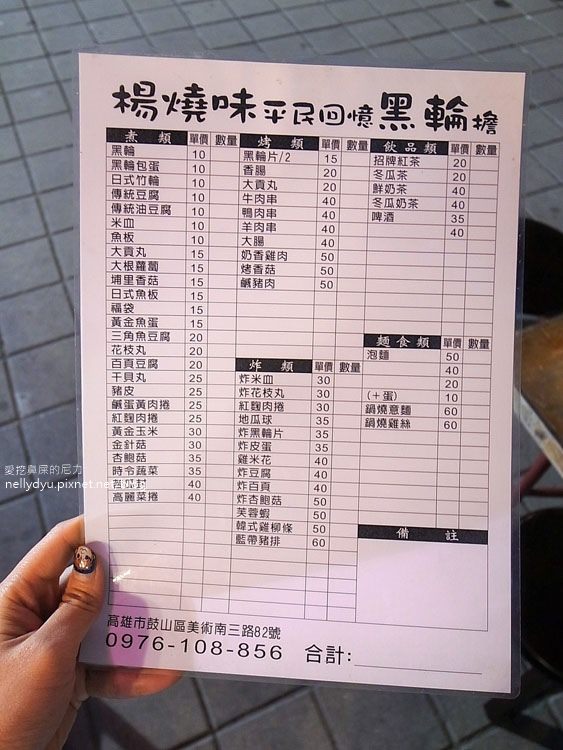 楊燒味平民回憶黑輪擔
煮類 單價 數量
黑輪 10
黑輪包蛋 10
日式竹輪 10
傳統豆腐 10
傳統油豆腐 10
米血 10
魚板 10
大貢丸 15
大根蘿蔔 15
埔里香菇 15
日式魚板 15
福袋 15
黃金魚蛋 15
三角魚豆腐 20
花枝丸 20
百頁豆腐 20
干貝丸 25
豬皮 25
鹹蛋黃肉捲 25
紅麴肉捲 25
黃金玉米 30
金針菇 30
杏鮑菇 35
時令蔬菜 35
40
高麗菜捲 40
烤類 單價 數量
黑輪片/2 15
香腸 20
大貢丸 20
牛肉串 40
鴨肉串 40
羊肉串 40
大腸 40
奶香雞肉 50
烤香菇 50
鹹豬肉 50
炸類 單價 數量
炸米血 30
炸花枝丸 30
紅麴肉捲 30
地瓜球 35
炸黑輪片 35
炸皮蛋 35
雞米花 40
炸豆腐 40
炸百頁 40
炸杏鮑菇 50
芙蓉蝦 50
韓式雞柳條 50
藍帶豬排 60
飲品類 單價 數量
招牌紅茶 20
冬瓜茶 20
鮮奶茶 40
冬瓜奶茶 40
啤酒 35
40
麵食類 單價 數量
泡麵 50
40
20
(+蛋) 10
鍋燒意麵 60
鍋燒雞絲 60
備註
高雄市鼓山區美術南三路82號
0976-108-856 合計:
愛挖鼻屎的尼力
nellydyu.pixnet.net/blog